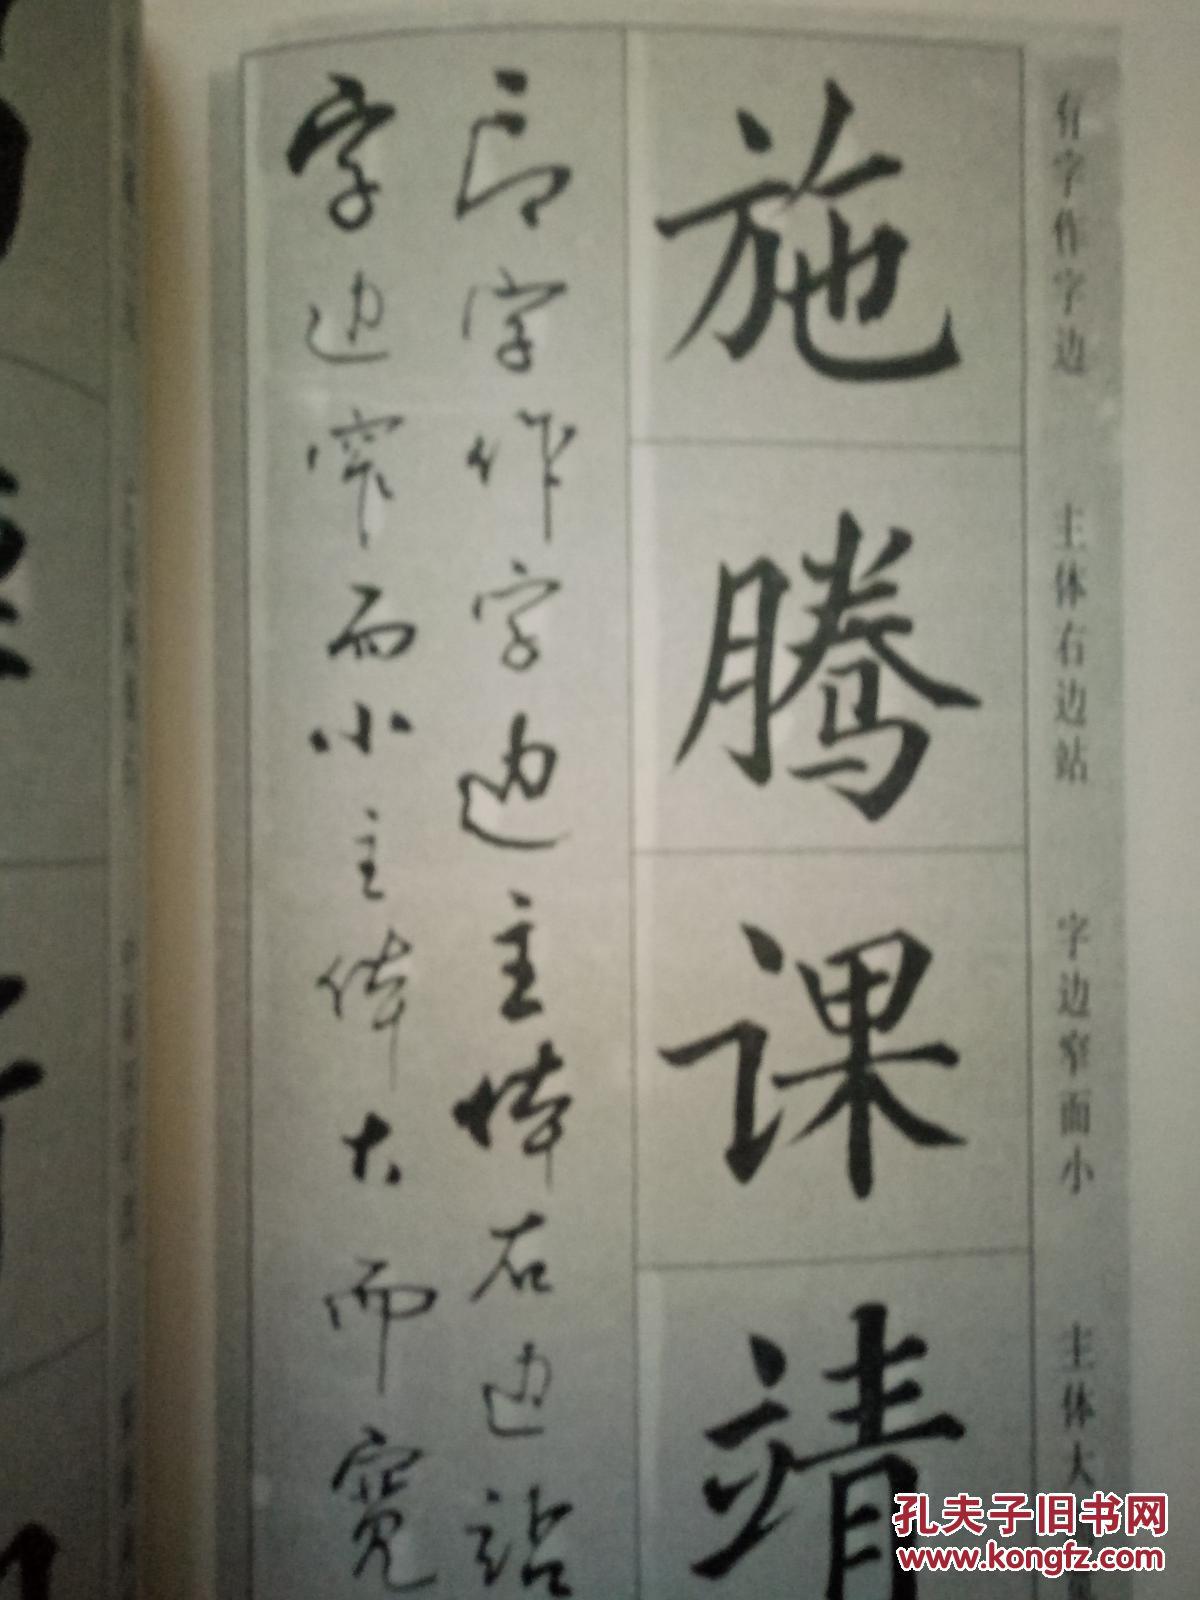 有字作字边 主体右边站 字边窄而小 主体大
施
腾
课
靖
字作字边主体右边站
字边窄而小主体大而宽
孔夫子旧书网
www.kongfz.com